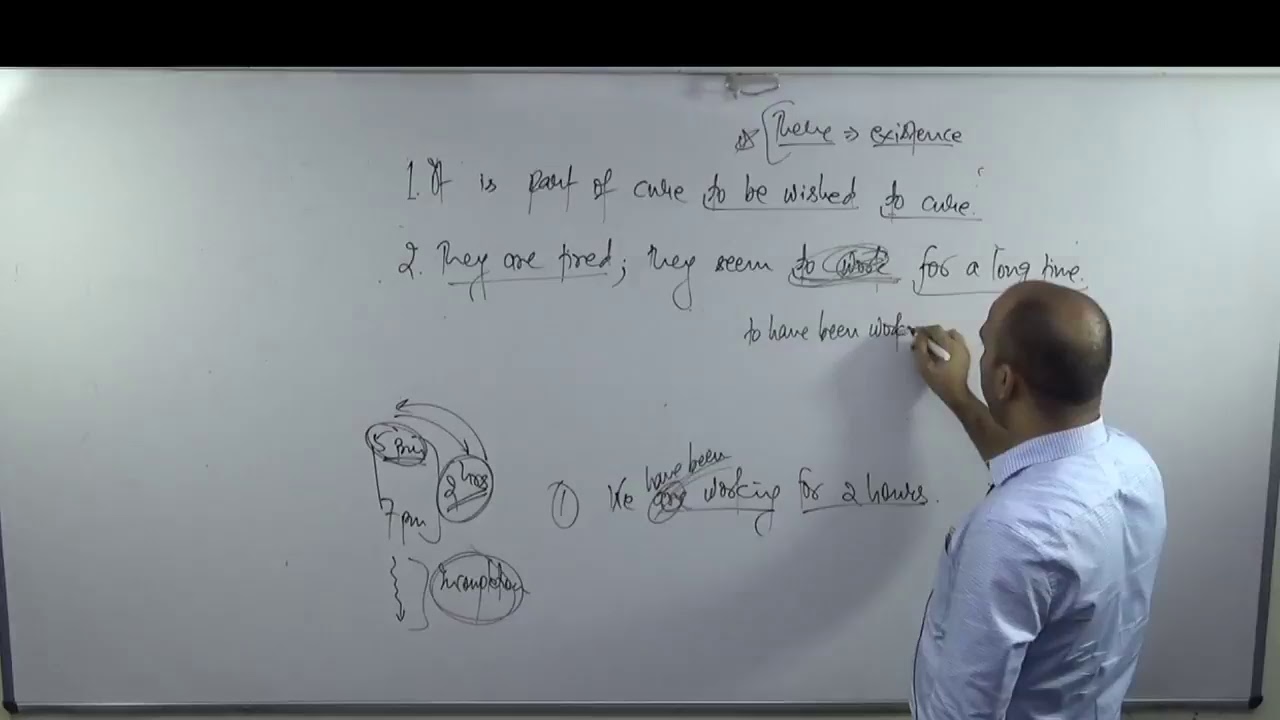 There => existence
1. It is part of cure to be wished to cure.
2. They are tired; they seem to work for a long time.
to have been work
5 pm
2 hrs
7 pm
have been
① We are working for 2 hours.